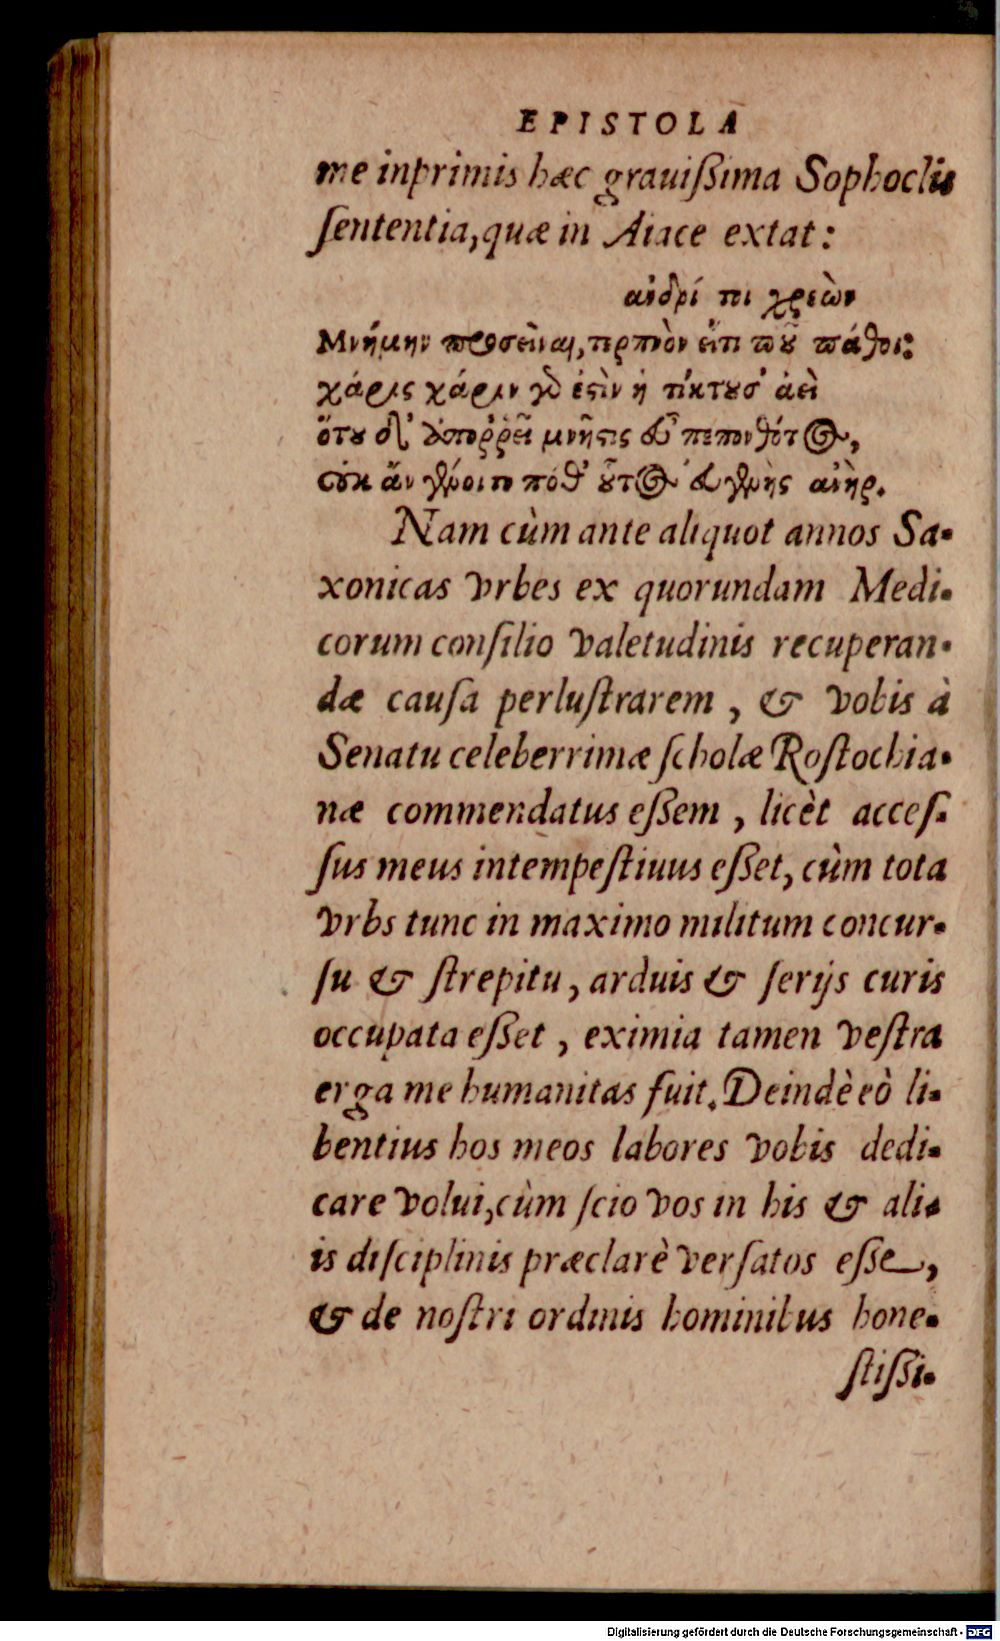 EPISTOLA
me inprimis hæc grauißima Sophoclis
ſententia, quæ in Aiace extat:
ἀνδρί τοι χρεὼν
Μνήμην προσεῖναι, τερπνὸν εἴ τι που πάθοι:
χάρις χάριν γάρ ἐστιν ἡ τίκτουσ' ἀεὶ
ὅτου δ' ἀπορρεῖ μνῆστις εὖ πεπονθότος,
οὐκ ἄν γένοιτο πόθ' οὗτος εὐγενὴς ἀνὴρ.
Nam cùm ante aliquot annos Sa-
xonicas vrbes ex quorundam Medi-
corum conſilio valetudinis recuperan-
dæ cauſa perluſtrarem, & vobis à
Senatu celeberrimæ ſcholæ Roſtochia-
næ commendatus eßem, licèt acceſ-
ſus meus intempeſtiuus eßet, cùm tota
vrbs tunc in maximo militum concur-
ſu & ſtrepitu, arduis & ſerijs curis
occupata eßet, eximia tamen veſtra
erga me humanitas fuit. Deindè eò li-
bentius hos meos labores vobis dedi-
care volui, cùm ſcio vos in his & ali-
is diſciplinis præclarè verſatos eße,
& de noſtri ordinis hominibus hone-
ſtißi-
Digitalisierung gefördert durch die Deutsche Forschungsgemeinschaft - DFG